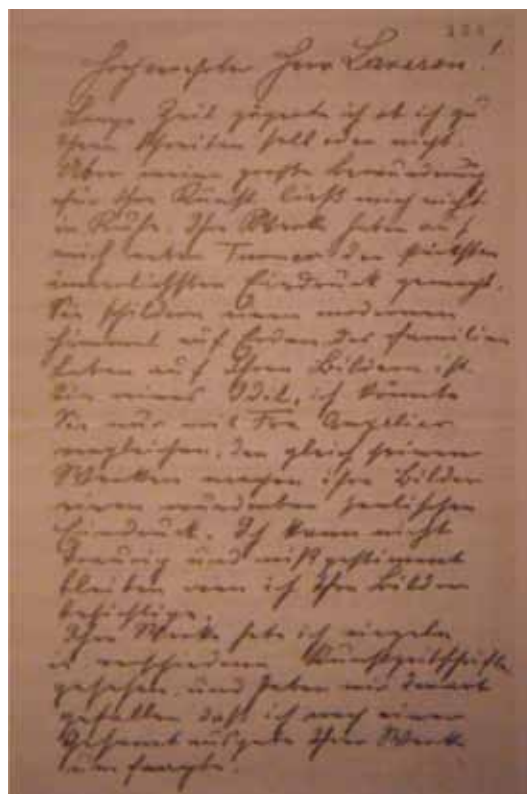 Hochverehrter Herr Larsson!
Lange Zeit zögerte ich ob ich zu
Ihnen schreiten soll oder nicht.
Aber meine große Bewunderung
für Ihre Kunst ließ mich nicht
in Ruhe. Ihre Werke haben auf
mich den stärksten
innerlichsten Eindruck gemacht.
Sie schildern einen modernen
Himmel auf Erden das Familien
leben auf Ihren Bildern ist
ich könnte
Sie nur mit Fra Angelico
vergleichen, den gleich seinen
Werken machen ihre Bilder
einen seelischen
Eindruck. Ich kann nicht
traurig und mißgestimmt
bleiben wen ich Ihre Bilder
besichtige.
Ihre Werke habe ich einzeln
in verschiedenen Kunstzeitschriften
gesehen und haben mir derart
gefallen daß ich nach einer
Gesamtausgabe Ihrer Werke